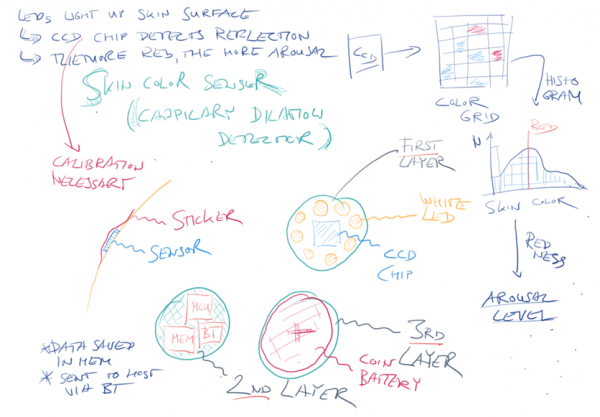 LEDS LIGHT UP SKIN SURFACE
↳ CCD CHIP DETECTS REFLECTION
↳ THE MORE RED, THE MORE AROUSAL
SKIN COLOR SENSOR
(CAPILARY DILATION
DETECTOR)
CCD
COLOR
GRID
HISTO
GRAM
RED
N
SKIN COLOR
RED
NESS
AROUSAL
LEVEL
CALIBRATION
NECESSARY
STICKER
SENSOR
FIRST
LAYER
WHITE
LED
CCD
CHIP
MCU
MEM
BT
2ND LAYER
3RD
LAYER
COIN
BATTERY
* DATA SAVED
IN MEM
* SENT TO HOST
VIA BT